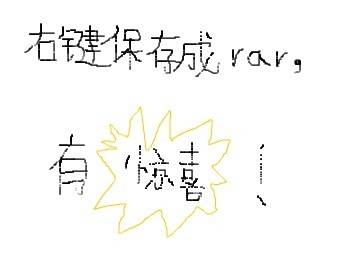 右键保存成rar，
有惊喜！